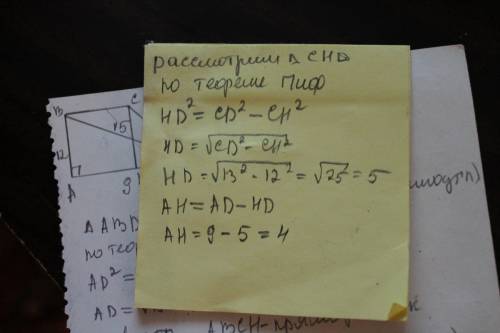 рассмотрим Δ CHD
по теореме Пиф
HD² = CD² - CH²
HD = √CD² - CH²
HD = √13² - 12² = √25 = 5
AH = AD - HD
AH = 9 - 5 = 4
B C
15
12
A 9
Δ ABD
по теор
AD² =
AD = √
ABCH - прямоу